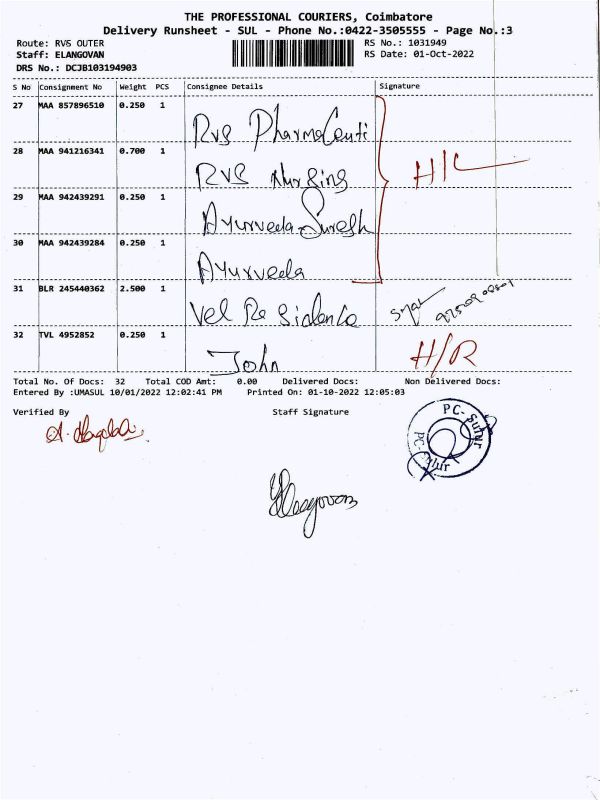 THE PROFESSIONAL COURIERS, Coimbatore
Delivery Runsheet - SUL - Phone No.:0422-3505555 - Page No.:3
Route: RVS OUTER
RS No.: 1031949
Staff: ELANGOVAN
RS Date: 01-Oct-2022
DRS No.: DCJB103194903
S No Consignment No Weight PCS Consignee Details Signature
27 MAA 857896510 0.250 1 RVS PharmaCeuti
28 MAA 941216341 0.700 1 RVS Nursing H/L
29 MAA 942439291 0.250 1 Ayurveda-Suresh
30 MAA 942439284 0.250 1 Ayurveda
31 BLR 245440362 2.500 1 Vel Residence
32 TVL 4952852 0.250 1 John H/R
Total No. Of Docs: 32 Total COD Amt: 0.00 Delivered Docs: Non Delivered Docs:
Entered By :UMASUL 10/01/2022 12:02:41 PM Printed On: 01-10-2022 12:05:03
Verified By Staff Signature
PC-Sulur
PC-Sulur
Elangovan